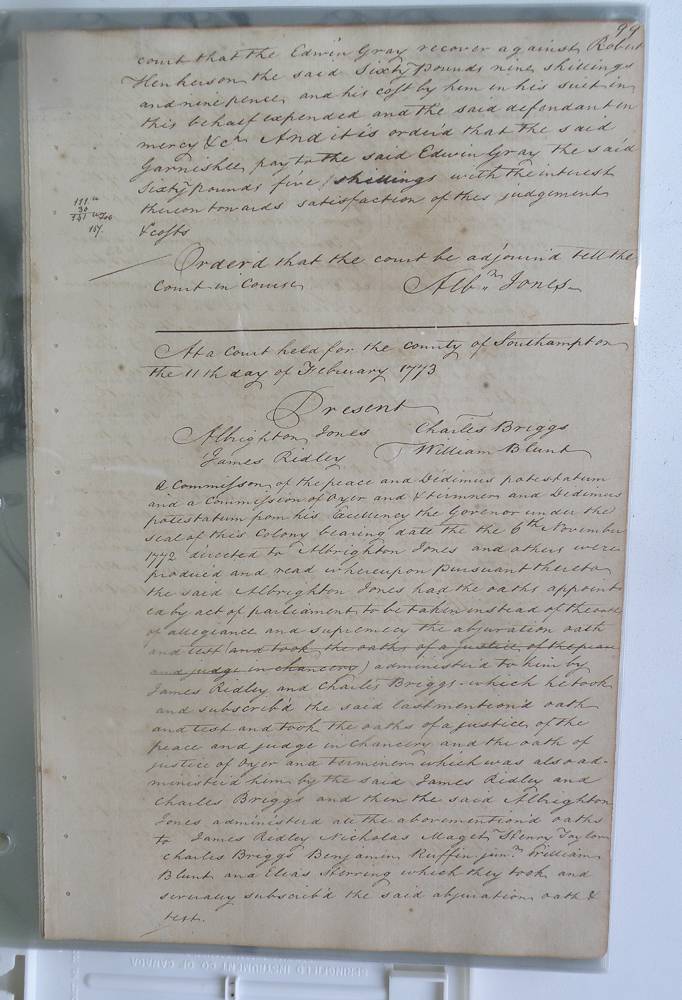 99
court that the Edwin Gray recover against Robert
Henherson the said Sixty Pounds nine shillings
and nine pence and his cost by him in his suit in
this behalf expended and the said defendant in
mercy &c. And it is order'd that the said
Garnishee pay to the said Edwin Gray the said
Sixty pounds five shillings with the interest
thereon towards satisfaction of this judgement
& costs
Order'd that the court be adjourn'd till the
Court in Course
Alb.n Jones
At a Court held for the county of Southampton
the 11th day of February 1773
Present
Albrighton Jones Charles Briggs
James Ridley William Blunt
A Commisson of the peace and Dedimus potestatum
and a Commission of Oyer and & terminer and Dedimus
potestatum from his Excellency the Govenor under the
seal of this Colony bearing date the the 6th November
1772 directed to Albrighton Jones and others were
produc'd and read whereupon Pursuant thereto
the said Albrighton Jones had the oaths appoint
ed by act of parliament to be taken instead of the oaths
of allegiance and supremecy the abjuration oath
and test (and took the oaths of a justice of the peace
and judge in chancery) administer'd to him by
James Ridley and Charles Briggs which he took
and subscrib'd the said last mention'd oath
and test and took the oaths of a justice of the
peace and judge in Chancery and the oath of
justice of Oyer and terminer which was also ad-
minister'd him by the said James Ridley and
Charles Briggs and then the said Albrighton
Jones administer'd all the abovemention'd oaths
to James Ridley Nicholas Maget Henry Taylor
Charles Briggs Benjamin Ruffin jun.r William
Blunt and Elias Herring which they took and
severally subscrib'd the said abjuration oath &
test.
SPRINGFIELD INSTRUMENT CO OF CANADA